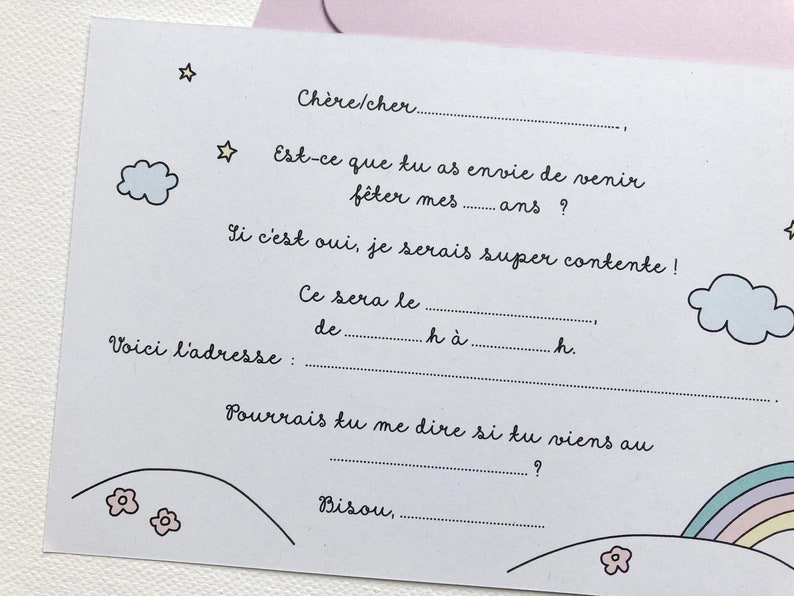 Chère/cher....................,
Est-ce que tu as envie de venir
fêter mes ........ ans ?
Si c'est oui, je serais super contente !
Ce sera le ....................,
de .................... h à .................... h.
Voici l'adresse : ........................................ .
Pourrais tu me dire si tu viens au
.................... ?
Bisou, ....................